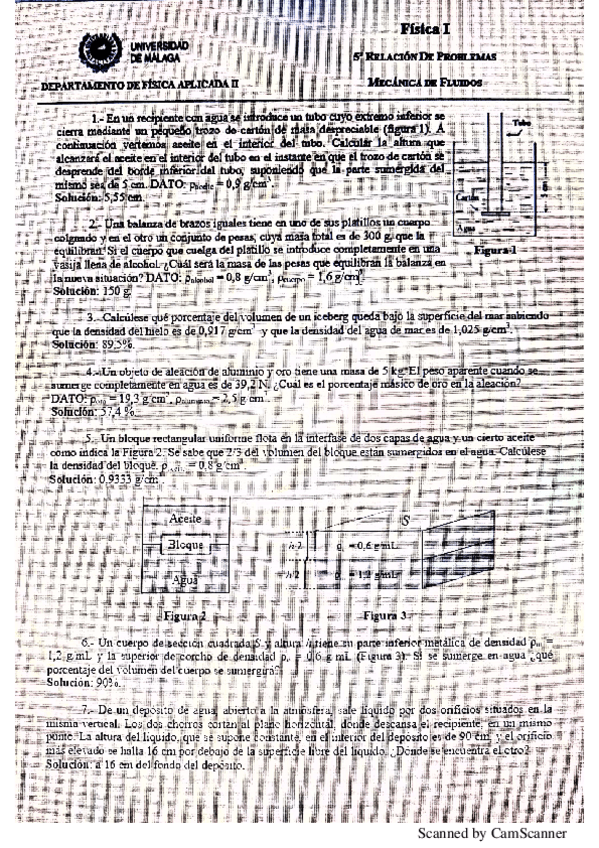 Física I
UNIVERSIDAD
DE MÁLAGA
5ª RELACIÓN DE PROBLEMAS
DEPARTAMENTO DE FÍSICA APLICADA II
MECÁNICA DE FLUIDOS
1.- En un recipiente con agua se introduce un tubo cuyo extremo inferior se
cierra mediante un pequeño trozo de cartón de masa despreciable (figura 1). A
continuación vertemos aceite en el interior del tubo. Calcular la altura que
alcanzará el aceite en el interior del tubo en el instante en que el trozo de cartón se
desprende del borde inferior del tubo, suponiendo que la parte sumergida del
mismo sea de 5 cm. DATO: ρaceite = 0,9 g/cm³.
Solución: 5,55 cm.
Tubo
Cartón
Agua
Figura 1
2.- Una balanza de brazos iguales tiene en uno de sus platillos un cuerpo
colgado y en el otro un conjunto de pesas, cuya masa total es de 300 g, que la
equilibran. Si el cuerpo que cuelga del platillo se introduce completamente en una
vasija llena de alcohol. ¿Cuál será la masa de las pesas que equilibran la balanza en
la nueva situación? DATO: ρalcohol = 0,8 g/cm³, ρcuerpo = 1,6 g/cm³.
Solución: 150 g.
3.- Calcúlese qué porcentaje del volumen de un iceberg queda bajo la superficie del mar sabiendo
que la densidad del hielo es de 0,917 g/cm³ y que la densidad del agua de mar es de 1,025 g/cm³.
Solución: 89,5%.
4.- Un objeto de aleación de aluminio y oro tiene una masa de 5 kg. El peso aparente cuando se
sumerge completamente en agua es de 39,2 N. ¿Cuál es el porcentaje másico de oro en la aleación?
DATO: ρoro = 19,3 g/cm³, ρaluminio = 2,5 g/cm³.
Solución: 57,4 %.
5.- Un bloque rectangular uniforme flota en la interfase de dos capas de agua y un cierto aceite
como indica la Figura 2. Se sabe que 2/3 del volumen del bloque están sumergidos en el agua. Calcúlese
la densidad del bloque. ρaceite = 0,8 g/cm³
Solución: 0,9333 g/cm³
Aceite
Bloque
Agua
Figura 2
S
h/2
ρc = 0,6 g/mL
h/2
= 1,2 g/mL
Figura 3
6.- Un cuerpo de sección cuadrada S y altura h tiene su parte inferior metálica de densidad ρm =
1,2 g/mL y la superior de corcho de densidad ρc = 0,6 g/mL (Figura 3). Si se sumerge en agua ¿qué
porcentaje del volumen del cuerpo se sumergirá?
Solución: 90%.
7.- De un depósito de agua, abierto a la atmósfera, sale líquido por dos orificios situados en la
misma vertical. Los dos chorros cortan al plano horizontal, donde descansa el recipiente, en un mismo
punto. La altura del líquido, que se supone constante, en el interior del depósito es de 90 cm, y el orificio
más elevado se halla 16 cm por debajo de la superficie libre del líquido. ¿Dónde se encuentra el otro?
Solución: a 16 cm del fondo del depósito.
Scanned by CamScanner